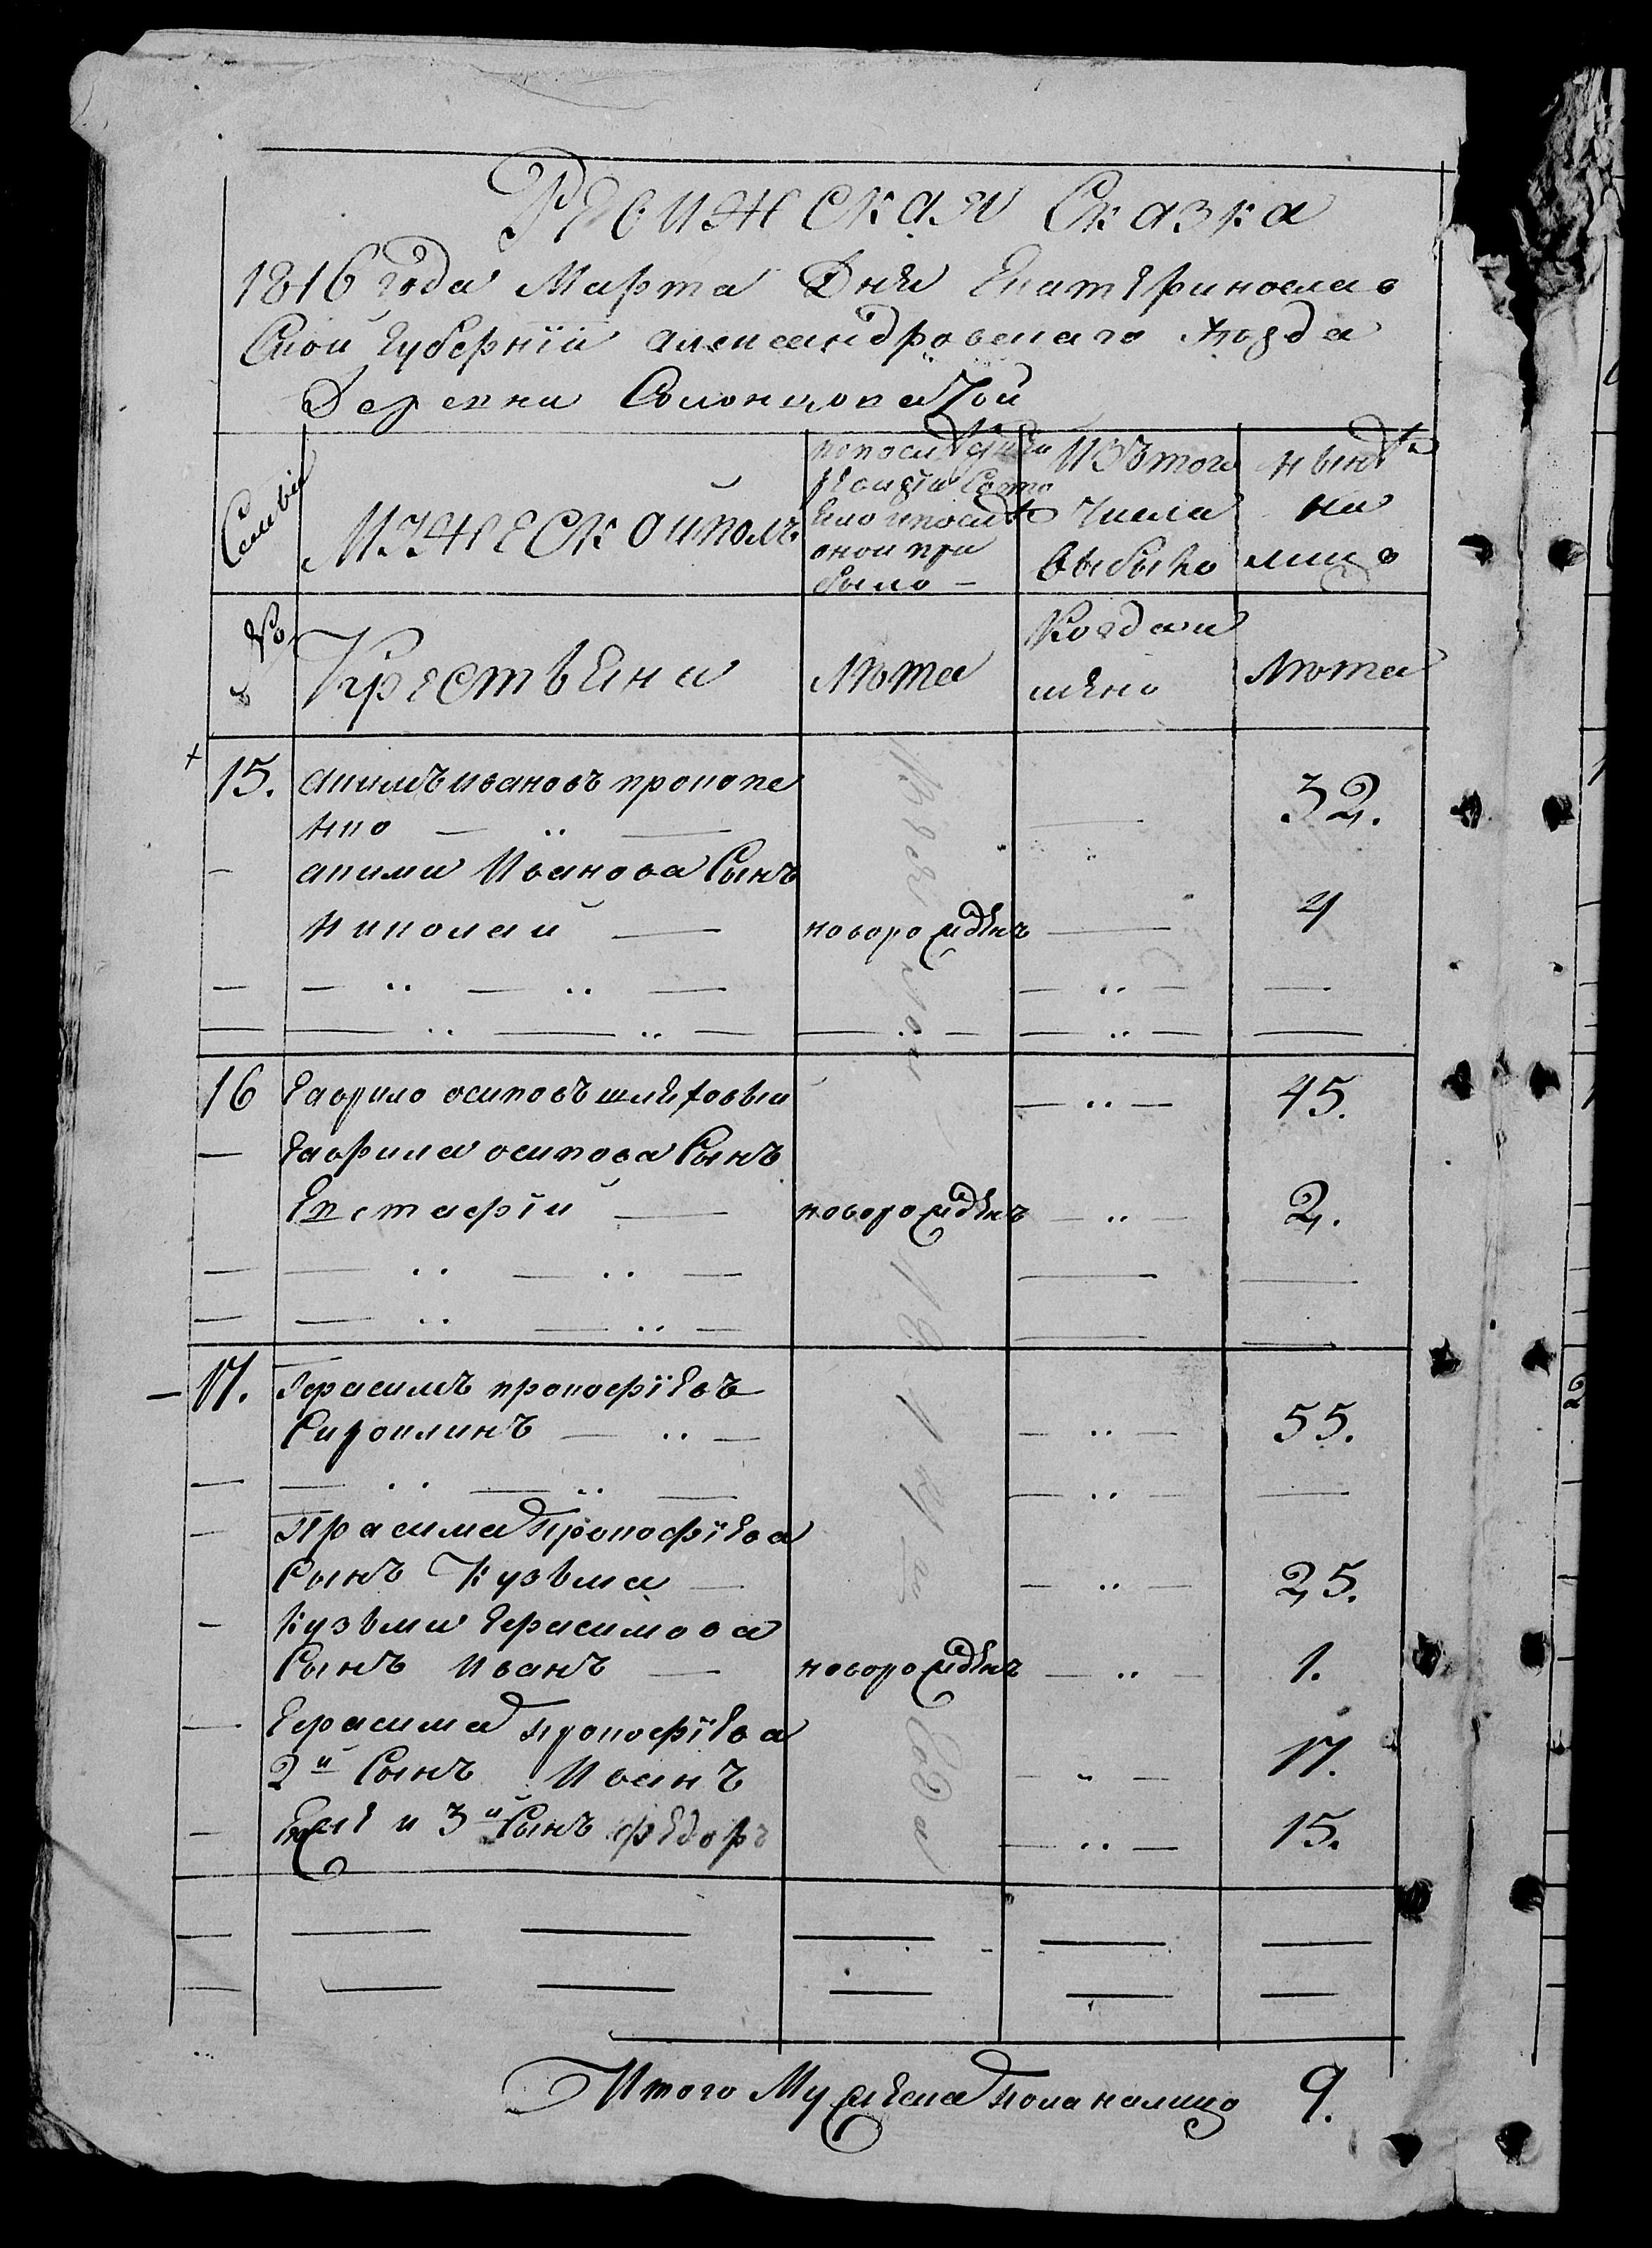 Ревижская Сказка
1816 года Марта Дня Екатеринослав
Ской Губернїи александровскаго Уѣзда
Деревни Солонцовачой
Семьи
Мужеской полъ
попослѣдней
ревизїи Состо
яло ипослѣ
оной при
было —
Изътого
числа
выбыло
нынѣ
на
лицо
№
Крестьяни
Лѣта
Когда и
мяно
Лѣта
15. акимъ ивановъ прокопе 32.
нко — .. —
— акима Иванова Сынъ
николай — новорожденъ — 4
16 Гаврило осиповъ шляховый — .. — 45.
— Гаврила осипова Сынъ
Евстафїй — новорожденъ — .. — 2.
— 17. Герасимъ прокофїевъ
Сироклинъ — .. — — .. — 55.
— Герасима прокофїева
Сынъ Кузьма — — .. — 25.
— Кузьми Герасимова
Сынъ иванъ — новорожденъ — .. — 1.
— Герасима прокофїева
2й Сынъ Иванъ — .. — 17.
— Ево же и 3й Сынъ федоръ — .. — 15.
Итого Мужеска пола налицо 9.